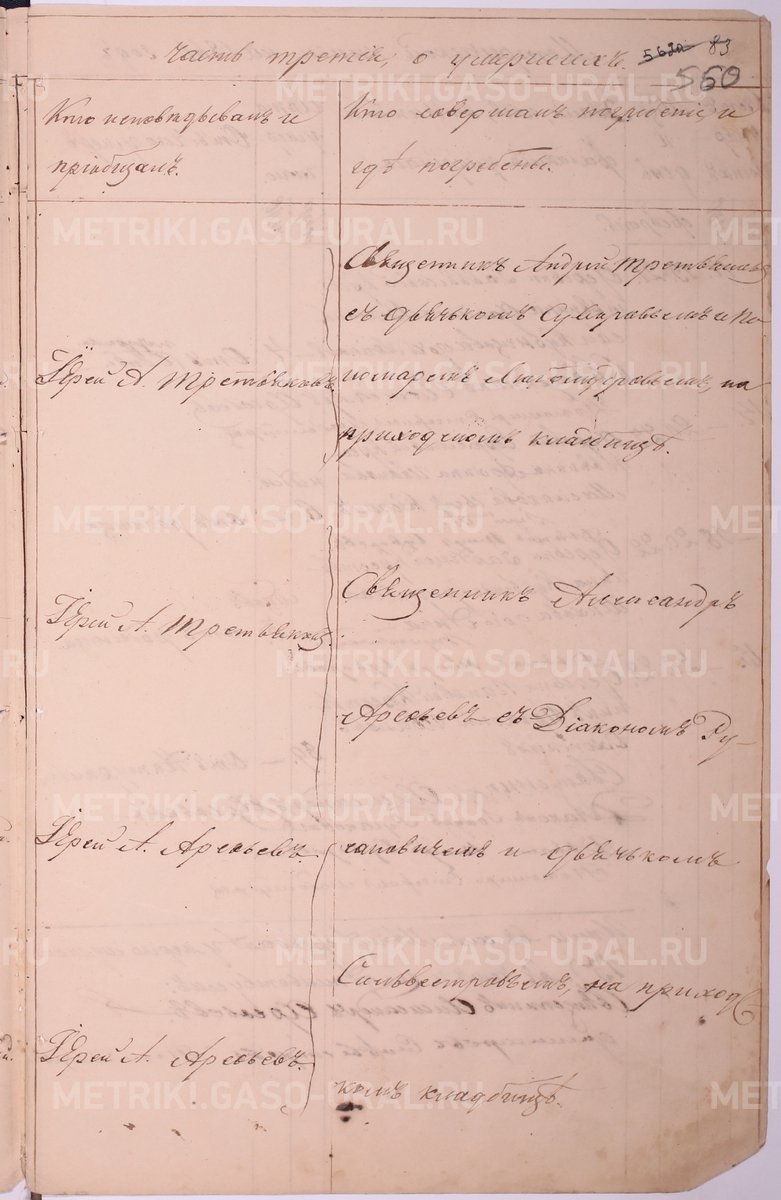 часть третія, о умершихъ. 562о 83
560
Кто исповѣдывалъ и
пріобщалъ.
Кто совершалъ погребеніе и
гдѣ погребены.
Іерей А. Третьяковъ.
Священникъ Андрей Третьяковъ
съ дьячькомъ и по-
номаремъ на
приходскомъ кладбищѣ.
Іерей А. Третьяковъ.
Іерей А. Арефьевъ.
Іерей А. Арефьевъ.
Священникъ Александръ
Арефьевъ съ Діакономъ Ру-
and
кановичемъ и дьячькомъ
Сильвестровымъ, на приходс
комъ кладбищѣ.
METRIKI.GASO-URAL.RU